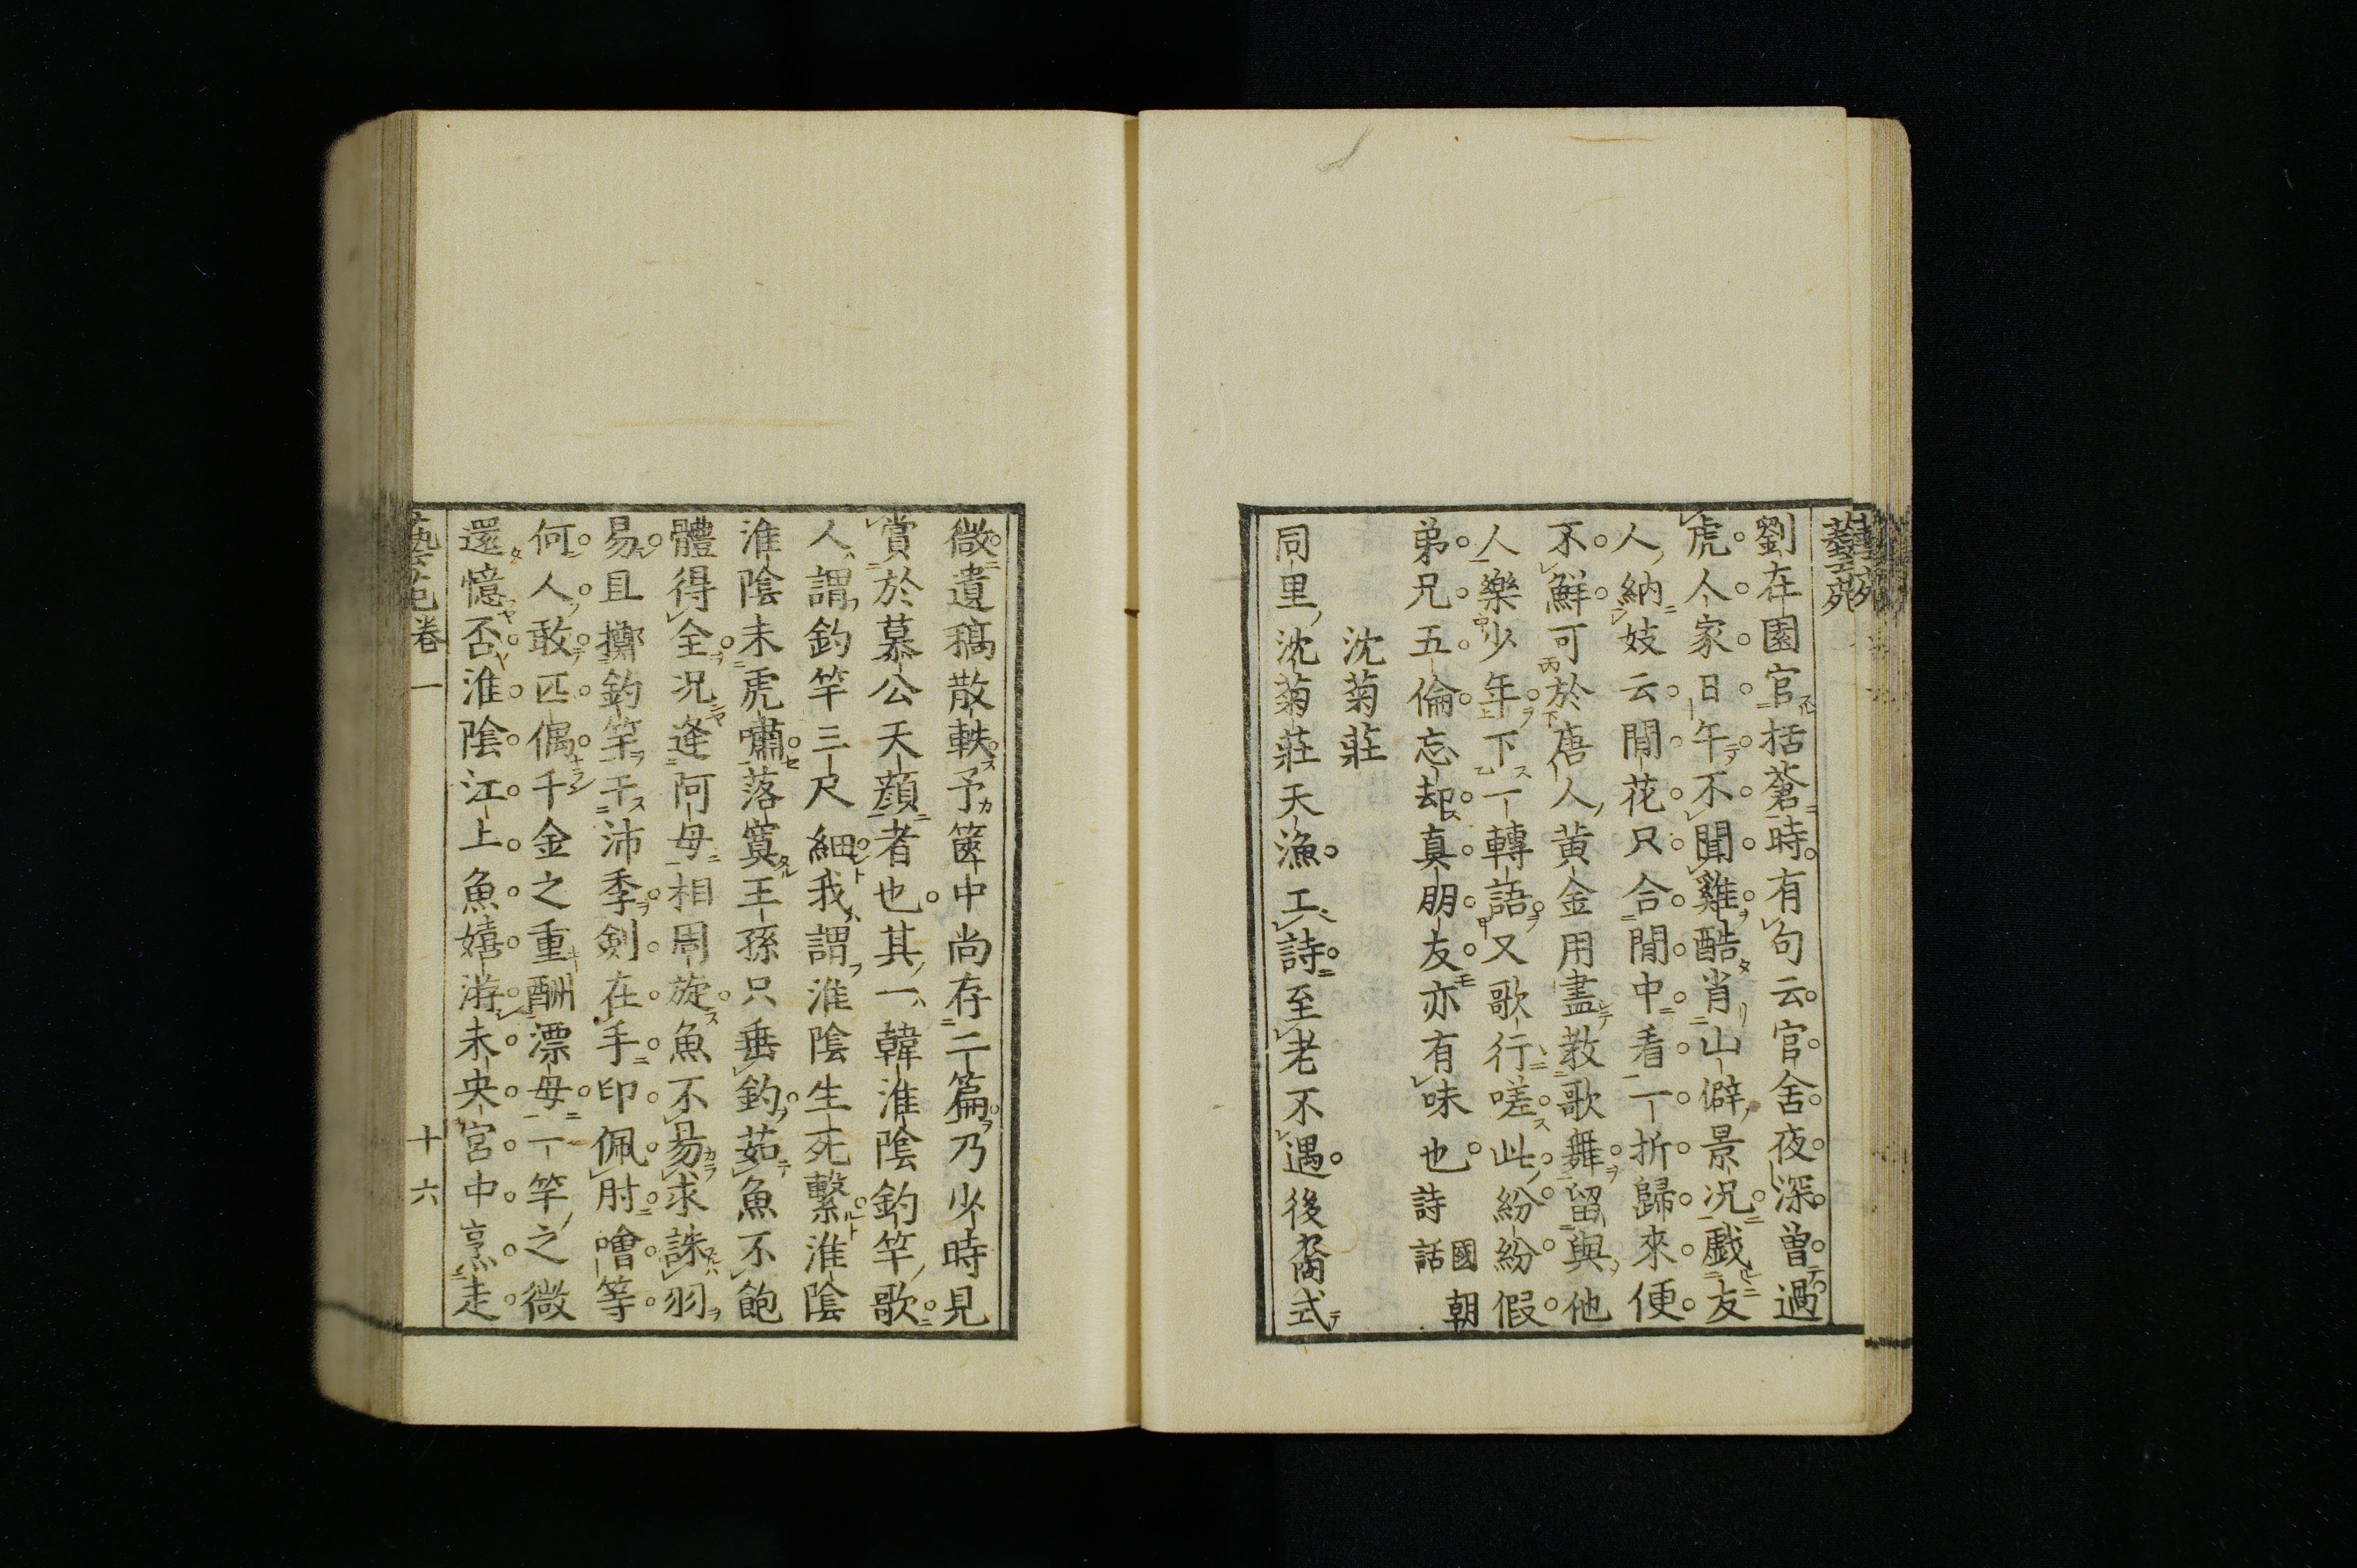 劉在園官括蒼時有句云官舍夜深曾過
虎人家日午不聞雞酷肖山僻景況戲友
人納妓云閒花只合閒中看一折歸來便
不鮮可於唐人黃金用盡教歌舞留與他
人樂少年下一轉語又歌行嗟此紛紛假
弟兄五倫忘却真朋友亦有味也國朝詩話
沈菊莊
同里沈菊莊天漁工詩至老不遇後裔式
微遺稿散軼予篋中尚存二篇乃少時見
賞於慕公天顔者也其一韓淮陰釣竿歌
人謂釣竿三尺細我謂淮陰生死繫淮陰
淮陰未虎嘯落寞王孫只垂釣茹魚不飽
體得全況逢阿母相周旋魚不易求誅羽
易且擲釣竿干沛季劍在手印佩肘噲等
何人敢匹偶千金之重酬漂母一竿之微
還憶否淮陰江上魚嬉游未央宮中烹走
藝苑卷一
十六